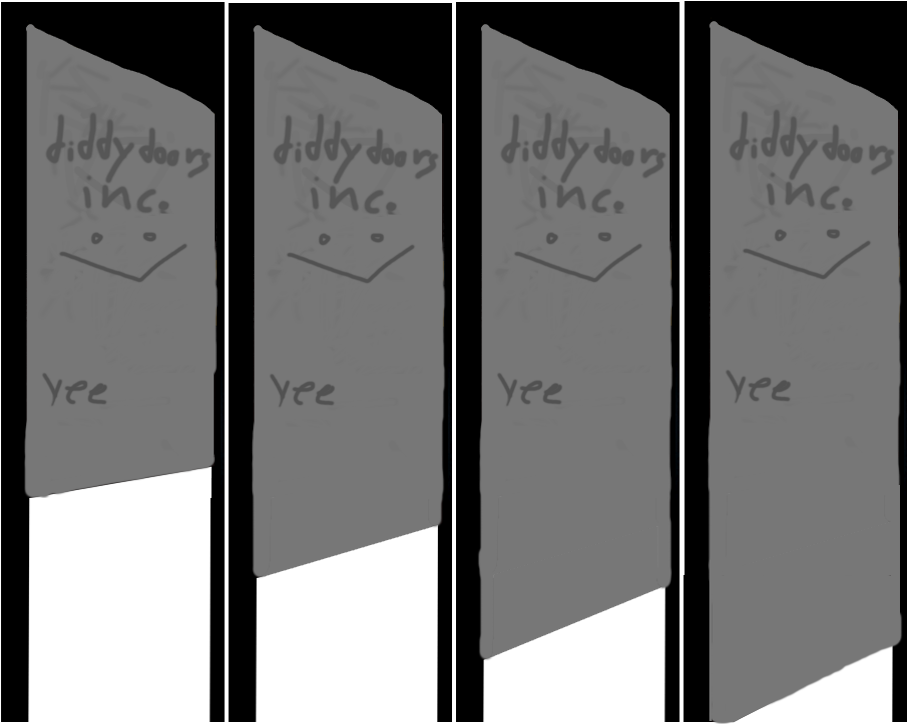 diddy doors
inc.
yee
diddy doors
inc.
yee
diddy doors
inc.
yee
diddy doors
inc.
yee